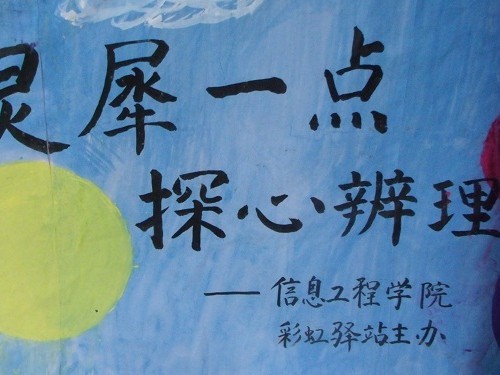 灵犀一点
探心辨理
——信息工程学院
彩虹驿站主办